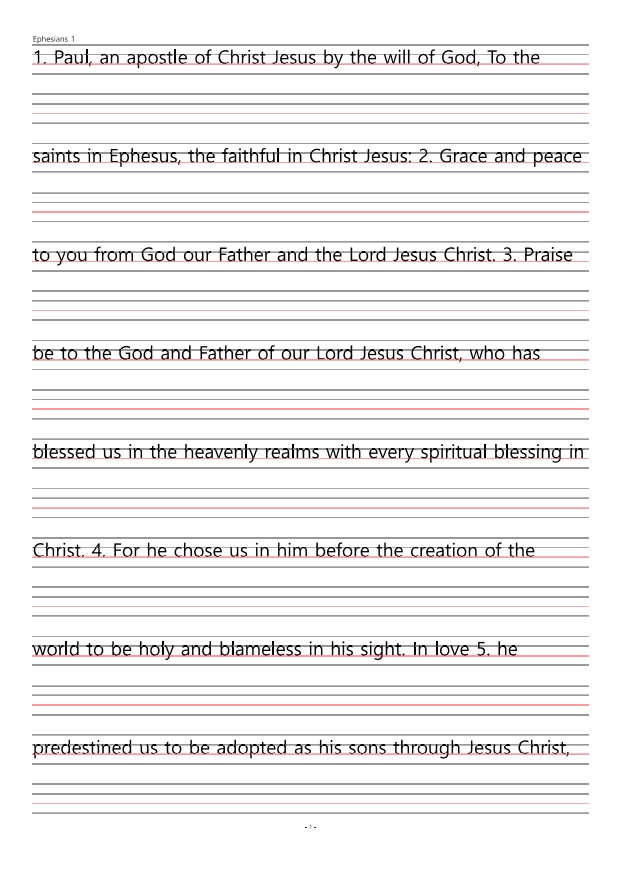 Ephesians 1
1. Paul, an apostle of Christ Jesus by the will of God, To the
saints in Ephesus, the faithful in Christ Jesus: 2. Grace and peace
to you from God our Father and the Lord Jesus Christ. 3. Praise
be to the God and Father of our Lord Jesus Christ, who has
blessed us in the heavenly realms with every spiritual blessing in
Christ. 4. For he chose us in him before the creation of the
world to be holy and blameless in his sight. In love 5. he
predestined us to be adopted as his sons through Jesus Christ,
- 1 -